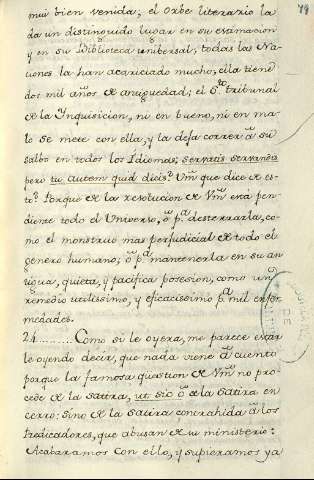 mui bien venida; el Orbe literario la
da un distinguido lugar en su estimacion
y en su Biblioteca unibersal; todas las Na-
ciones la han acariciado mucho; ella tiene
dos mil años de antiguedad; el Sto. tribunal
de la Ynquisicion, ni en bueno, ni en ma-
lo se mete con ella, y la deja correr â su
salbo en todos los Idiomas, servatis servandis
pero tu autem quid dicis? Vm que dice de es-
to? Porque de la resolucion de Vm está pen-
diente todo el Universo, ô pa. desterrarla, co-
mo el monstruo mas perjudicial de todo el
genero humano; ô pa. mantenerla en su an-
tigua, quieta, y pacifica posesion, como un
remedio utilissimo, y eficacissimo pa. mil enfer-
medades.
24........Como si le oyera, me parece estar
leoyendo decir, que nada viene âl cuento
porque la famosa question de Vm no pro-
cede de la Satira, ut sic, ô de la Satira en
cerro: Sino de la Satira contrahida â los
Predicadores, que abusan de su ministerio:
Acabaramos con ello, y supieramos ya